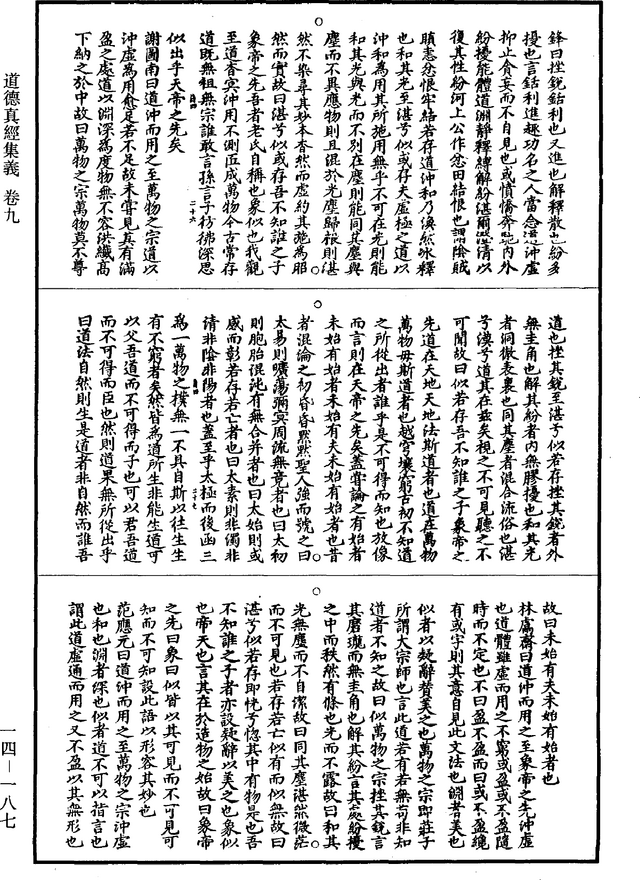 道德真經集義　卷九
一四—一八七
鋒曰挫銳銛利也又進也解釋散也紛多
擾也言銛利進趣功名之人當念道沖虛
抑止貪妄而不自見也或憤憍奔馳內外
紛擾能體道淵靜釋縛解紛湛爾澄清以
復其性紛河上公作忿田結恨也謂陰賊
瞋恚忿恨牢結若存道沖和乃渙然冰釋
也和其光至湛兮似或存夫虛極之道以
沖和為用其所施用無乎不可在光則能
和其光與光而不別在塵則能同其塵與
塵而不異應物則且混於光塵歸根則湛
然不染尋其妙本杳然而虛約其施為昭
然而實故曰湛兮似或存吾不知誰之子
象帝之先吾者老氏自稱也象似也我觀
至道杳冥沖用不測匠成萬物今古常存
道既無祖無宗誰敢言孫言子彷彿深思
似出乎天帝之先矣
謝圖南曰道沖而用之至萬物之宗道以
沖虛為用愈足若不足故未嘗見其有滿
盈之處道以淵深為度物無不容洪纖高
下納之於中故曰萬物之宗萬物莫不尊
道也挫其銳至湛兮似若存挫其銳者外
無圭角也解其紛者內無膠擾也和其光
者洞徹表裏也同其塵者混合流俗也湛
兮漠兮道其在茲矣視之不可見聽之不
可聞故曰似若存吾不知誰之子象帝之
先道在天地天地法斯道者也道在萬物
萬物毋斯道者也越宇壤窮古初不知道
之所從出者誰乎是不可得而知也放像
而言則在天帝之先矣蓋嘗論之有始者
未始有始者未始有夫未始有始者也昔
者混淪之初昏昏默默聖人強而號之曰
太易則曠蕩彌冥周流無竟者也曰太初
則胞胎混沌有無合并者也曰太始則或
感而彰若存若亡者也曰太素則非濁非
清非陰非陽者也蓋至乎太極而後函三
為一萬物之樸無一不具自斯以往生生
有不窮者矣然皆為道所生非能生道可
以父吾道而不可得而子也可以君吾道
而不可得而臣也然則道果無所從出乎
曰道法自然則生是道者非自然而誰吾
故曰未始有夫未始有始者也
林鬳齋曰道沖而用之至象帝之先沖虛
也道體雖虛而用之不窮或盈或不盈隨
時而不定也不曰盈不盈而曰或不盈纔
有或字則其意自見此文法也淵者美也
似者以疑辭贊美之也萬物之宗即莊子
所謂大宗師也言此道若有若無苟非知
道者不知之故曰似萬物之宗挫其銳言
其磨瓏而無圭角也解其紛言其處紛擾
之中而秩然有條也光而不露故曰和其
光無塵而不自潔故曰同其塵湛然微茫
而不可見也若存若亡似有而似無故曰
湛兮似若存即恍兮惚其中有物是也吾
不知誰之子者亦設疑辭以美之也象似
也帝天也言其在於造物之始故曰象帝
之先曰象曰似皆以其可見而不可見可
知而不可知設此語以形容其妙也
范應元曰道沖而用之至萬物之宗沖虛
也和也淵者深也似者道不可以指言也
謂此道虛通而用之又不盈以其無形也